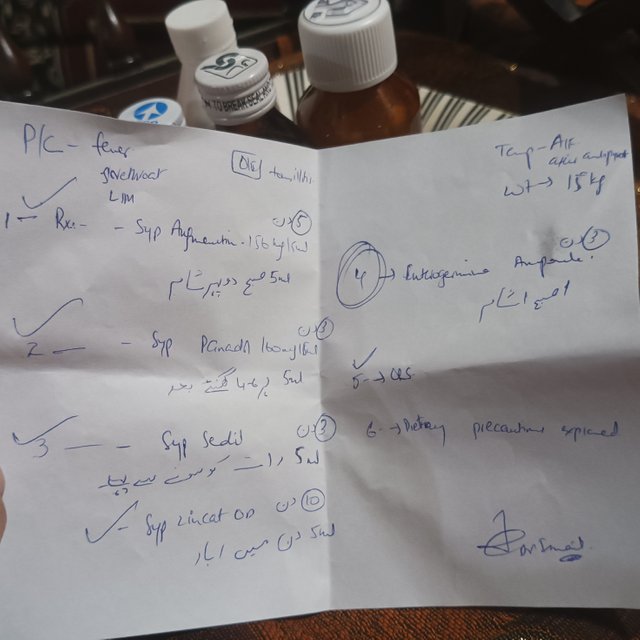 P/C - fever
sorethroat
LIM
D/s tonsillitis
1 - Rx - Syp Augmentin 156mg/5ml دن 5
5ml صبح دوپہر شام
2 - Syp Panadol 160mg/5ml دن 3
5ml ہر 4-6 گھنٹے بعد
3 - Syp Sedil دن 3
5ml رات کو سونے سے پہلے
- Syp Zincat OD دن 10
5ml دن میں 1 بار
Temp - A/F
wt → 15 kg
4 → Enterogermina Ampoule دن 3
1 صبح 1 شام
5 → ORS
6 → Dietary precautions explained
TO BREAK SEAL